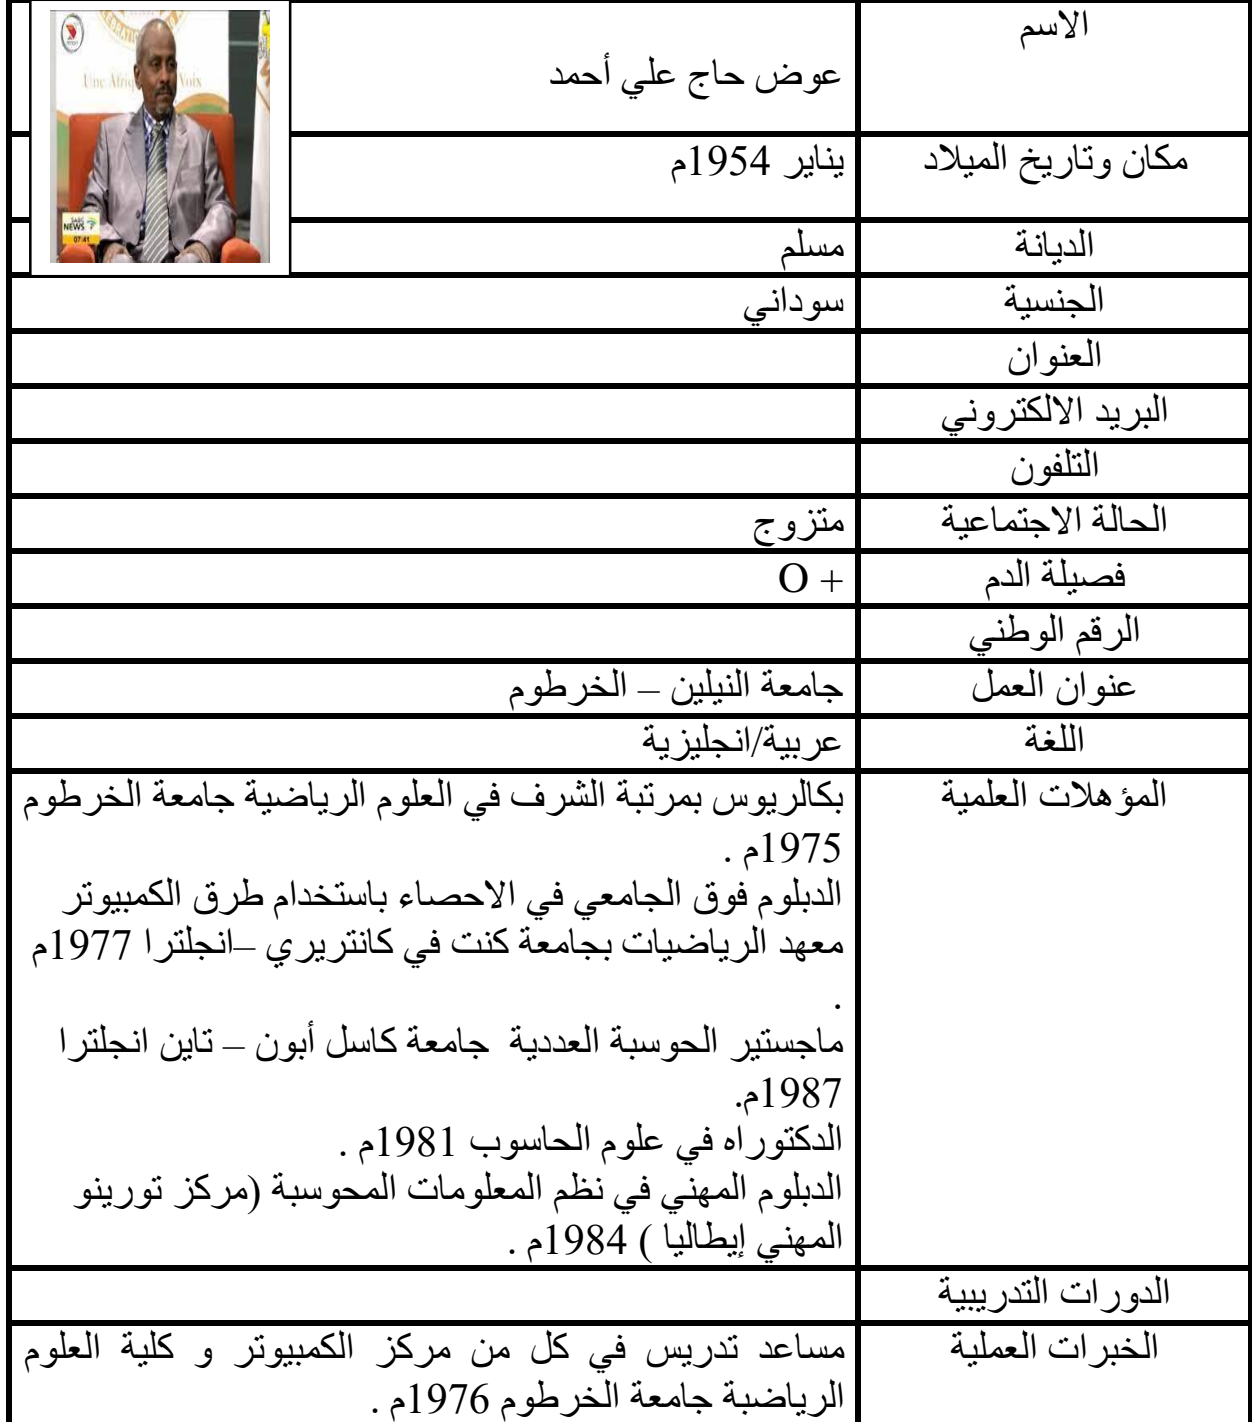 الاسم
عوض حاج علي أحمد
Une Afriq
Voix
SABC
NEWS
07:41
مكان وتاريخ الميلاد
يناير 1954م
الديانة
مسلم
الجنسية
سوداني
العنوان
البريد الالكتروني
التلفون
الحالة الاجتماعية
متزوج
فصيلة الدم
O +
الرقم الوطني
عنوان العمل
جامعة النيلين – الخرطوم
اللغة
عربية/انجليزية
المؤهلات العلمية
بكالريوس بمرتبة الشرف في العلوم الرياضية جامعة الخرطوم
1975م .
الدبلوم فوق الجامعي في الاحصاء باستخدام طرق الكمبيوتر
معهد الرياضيات بجامعة كنت في كانتريري –انجلترا 1977م
.
ماجستير الحوسبة العددية جامعة كاسل أبون – تاين انجلترا
1987م.
الدكتوراه في علوم الحاسوب 1981م .
الدبلوم المهني في نظم المعلومات المحوسبة (مركز تورينو
المهني إيطاليا ) 1984م .
الدورات التدريبية
الخبرات العملية
مساعد تدريس في كل من مركز الكمبيوتر و كلية العلوم
الرياضبة جامعة الخرطوم 1976م .